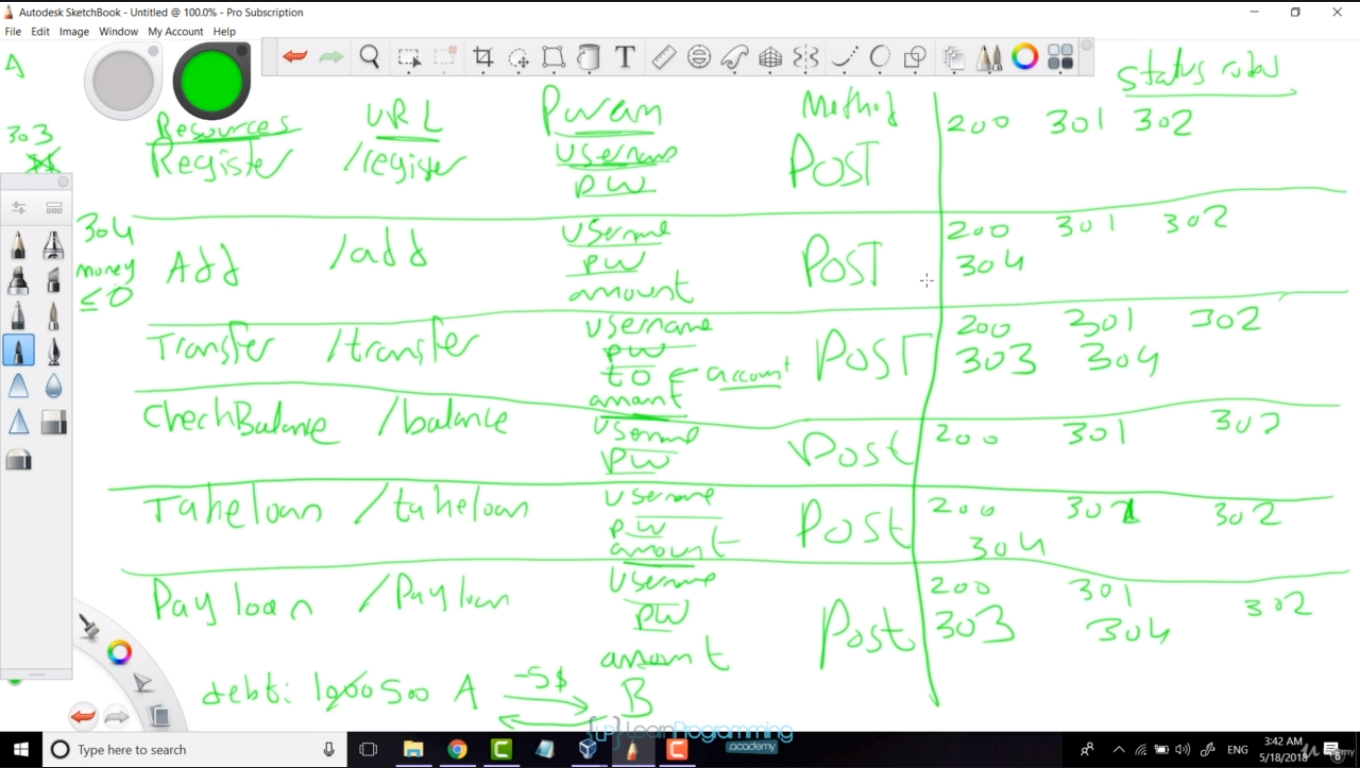 Autodesk SketchBook - Untitled @ 100.0% - Pro Subscription
File Edit Image Window My Account Help
A
Status codes
Resources URL Param Method
303
Register /register Username PW POST 200 301 302
304 money ≤0
Add /add Username PW amount POST 200 301 302 304
Transfer /transfer Username PW to ← account amount POST 200 301 302 303 304
CheckBalance /balance Username PW Post 200 301 302
Takeloan /takeloan Username PW amount Post 200 301 302 304
Pay loan /Payloan Username PW amount Post 200 301 302 303 304
debt: 500 A -5$ B
LearnProgramming
academy
Type here to search
ENG
3:42 AM
5/18/2018
6